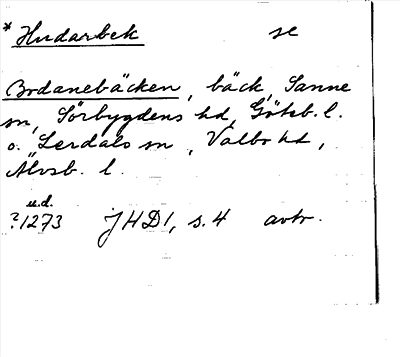 * Hudarbek se
Bodanebäcken, bäck, Sanne
sn, Sörbygdens hd, Göteb. l.
o. Lerdals sn, Valbo hd,
Älvsb. l.
u.d.
?1273 JHD 1, s. 4 avtr.